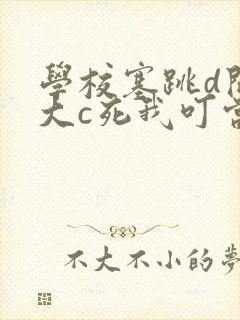 學校塞跳d開
大c死我叮當
不大不小的夢